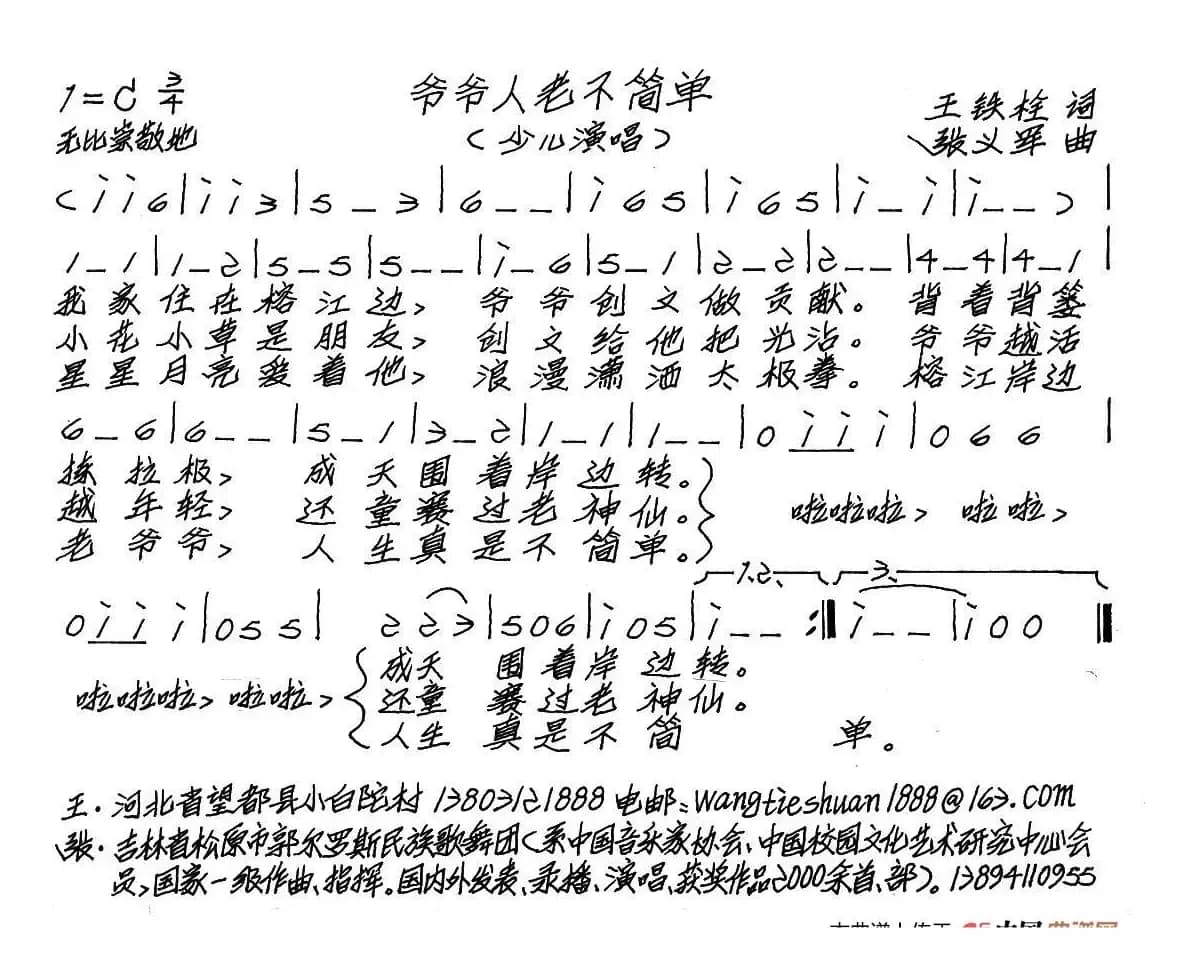 1=C 3/4
爷爷人老不简单
王铁栓 词
无比崇敬地
(少儿演唱)
张义军 曲
(i̇ i̇ 6|i̇ i̇ 3|5 – 3|6 – –|i̇ 6 5|i̇ 6 5|i̇ – i̇|i̇ – –)|
1 – 1|1 – 2|5 – 5|5 – –|i̇ – 6|5 – 1|2 – 2|2 – –|4 – 4|4 – 1|
我家住在榕江边, 爷爷创文做贡献。 背着背篓
小花小草是朋友, 创文给他把光沾。 爷爷越活
星星月亮爱着他, 浪漫潇洒太极拳。 榕江岸边
6 – 6|6 – –|5 – 1|3 – 2|1 – 1|1 – –|0 i̇ i̇ i̇|0 6 6|
拣垃极, 成天围着岸边转。
越年轻, 还童赛过老神仙。 啦啦啦, 啦啦,
老爷爷, 人生真是不简单。
1.2. 3.
0 i̇ i̇ i̇|0 5 5| 2 2 3|5 0 6|i̇ 0 5|i̇ – – :‖ i̇ – –|i̇ 0 0‖
成天 围着岸边转。
啦啦啦, 啦啦, 还童 赛过老神仙。
人生 真是不简 单。
王·河北省望都县小白陀村 13803121888 电邮:wangtieshuan1888@163.com
张·吉林省松原市郭尔罗斯民族歌舞团(系中国音乐家协会、中国校园文化艺术研究中心会
员,国家一级作曲、指挥。国内外发表、录播、演唱、获奖作品2000余首、部)。13894110955